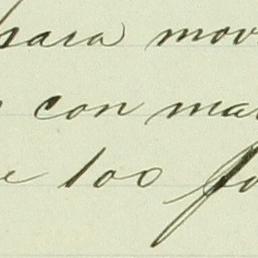 para mov
con ma
e 100 fo